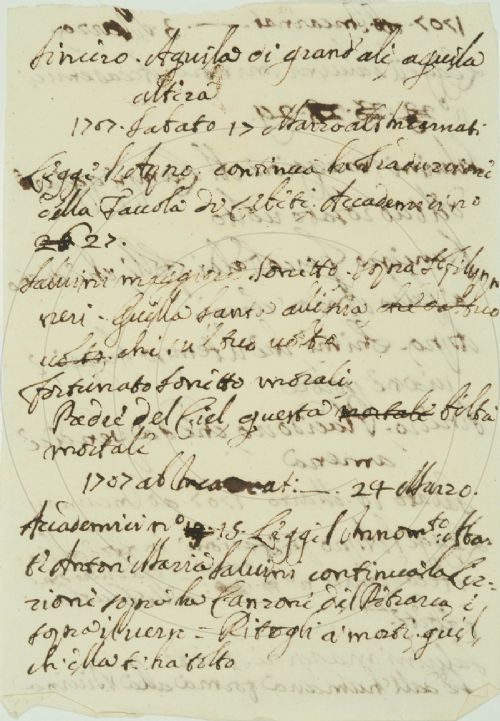 Sincero. Aquila di grand'ali aquila
altera
1707. Sabato 17 Marzo ab Incarnat.
Legge l'Atuno, continua la Traduzione
della Tavola di Cebete. Accademici no
27.
Salvini maggiore. Sonetto sopra
neri. Quella santa
che il tuo volto
Fortunato sonetto morale
Padre del Ciel, questa mortale beltà
mortale
1707 ab Incarnat. — 24 Marzo.
Accademici n.o 15. Legge l'Innom.to Aba-
te Anton Maria Salvini continua la Lez-
zione sopra la Canzone del Petrarca, e
sopra il verso = Ritogli a morte quel
ch'ella t'ha tolto